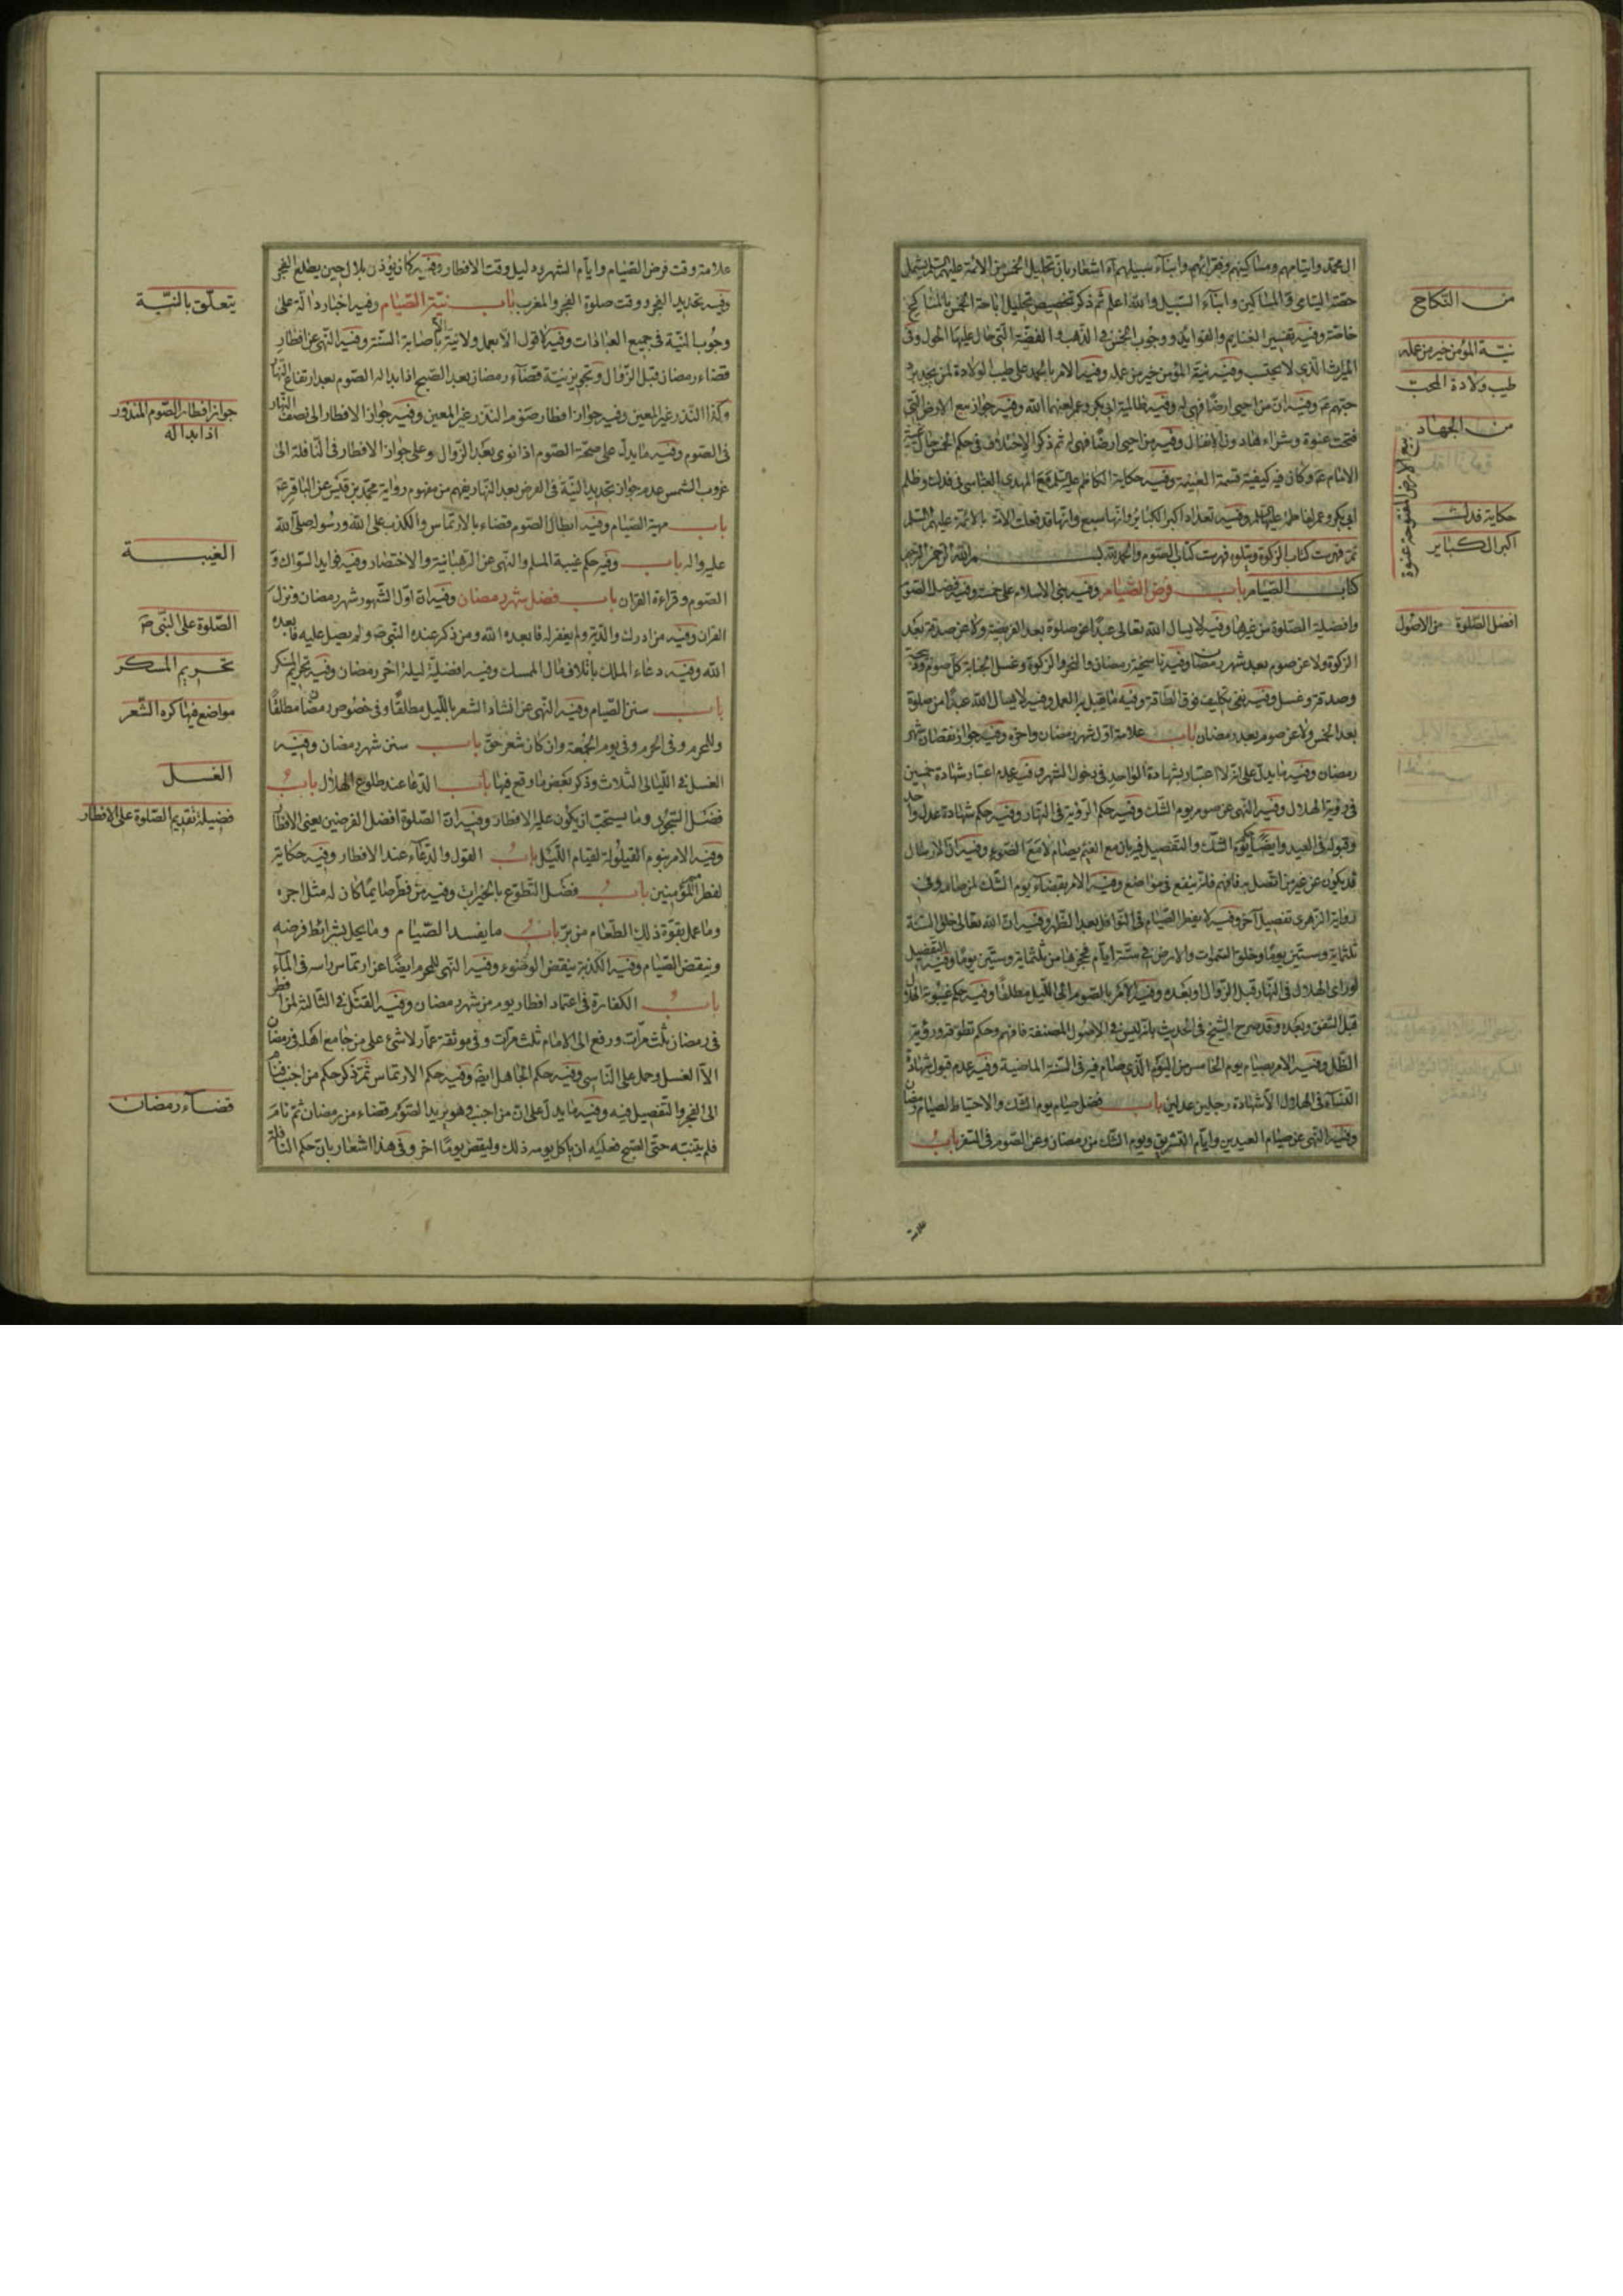 ال محمد وايتامهم ومساكينهم وفقرائهم وابناء سبيلهم آه اشعار بان تحليل الخمس من الائمة عليهم السلم يشمل
حصة اليتامى والمساكين وابناء السبيل والله اعلم ثم ذكر تخصيص تحليل اباحة الخمس بالمناكح
خاصة وفيه تفسير الغنايم والفوايد ووجوب الخمس فى الذهب والفضة التى حال عليهما الحول وفى
الميراث الذى لا يحتسب وفيه نية المؤمن خير من عمله وفيه الامر بالحمد على طيب الولادة لمن يجد برد
حبهم ع‍ وفيه ان من احيى ارضا فهى له وفيه ظالمية ابى بكر وعمر وفيه جواز بيع الارض التى
فتحت عنوة وشراء هاد وفى الانفال وفيه من احيى ارضا فهى له ثم ذكر الاختلاف فى حكم الخمس حال غيبة
الامام ع‍ وكان فيه كيفية قسمة الغنيمة وفيه حكاية الكاظم عليه السلم مع المهدى العباسى فى فدك وظلم
ابى بكر وعمر لفاطمة وفيه تعداد اكبر الكباير وانها سبع وانها قد فعلت الامة بالائمة عليهم السلم
تمت فهرست كتاب الزكوة ويتلوه فهرست كتاب الصوم والحمد لله بسم الله الرحمن الرحيم
كتاب الصيام باب فرض الصيام وفيه بنى الاسلام على خمس وفيه فضل الصوم
وافضلية الصلوة من غيرها وفيه لا يسال الله تعالى عبدا عن صلوة بعد الفريضة ولا عن صدقة بعد
الزكوة ولا عن صوم بعد شهر رمضان وفيه ناسخية رمضان والنحر والزكوة وغسل الجنابة كل صوم وذبيحة
وصدقة وغسل وفيه نفى تكليف فوق الطاقة وفيه ما يقبل به العمل وفيه لا يسال الله عبدا من صلوة
بعد الخمس ولا عن صوم بعد رمضان باب علامة اول شهر رمضان واخره وفيه جواز نقصان شهر
رمضان وفيه ما يدل على انه لا اعتبار بشهادة الواحد فى دخول الشهر وفيه عدم اعتبار شهادة خمسين
فى رؤية الهلال وفيه النهى عن صوم يوم الشك وفيه حكم الرؤية فى النهار وفيه حكم شهادة عدل واحد
وقبوله فى العيد وايضا حكم يوم الشك والتفصيل فيه بان مع الغيم يصام لا مع الصحو وفيه ان الارسال
قد يكون عن غير من اتصل به فافهم فانه ينفع فى مواضع وفيه الامر بقضاء يوم الشك لمن صام وفى
رواية الزهرى تفصيل آخر وفيه لا يفطر الصيام فى النوافل بعد الظهر وفيه ان الله تعالى خلق السنة
ثلثماية وستين يوما وخلق السموات والارض فى ستة ايام فحجزها من ثلثماية وستين يوما وفيه التفصيل
لو راى الهلال فى النهار قبل الزوال او بعده وفيه الامر بالصوم الى الليل مطلقا وفيه حكم غيبوبة الهلال
قبل الشفق وبعده وقد صرح الشيخ فى الحديث بانه ليس فى الاصول المصنفة فافهم وحكم تطوقه ورؤية
الظل وفيه الامر بصيام يوم الخامس من اليوم الذى صام فيه فى السنة الماضية وفيه عدم قبول شهادة
النساء فى الهلال الا شهادة رجلين عدلين باب فضل صيام يوم الشك والاحتياط لصيام رمضان
وفيه النهى عن صيام العيدين وايام التشريق ويوم الشك من رمضان وعن الصوم فى السفر باب
علامة
من النكاح
نية المؤمن خير من عمله
طيب ولادة المحب
من الجهاد
بيع الارض المفتوحة عنوة
حكاية فدك
اكبر الكباير
افضل الصلوة من الاصول
علامة وقت فرض الصيام وايام الشهر ودليل وقت الافطار وفيه كان يؤذن بلال حين يطلع الفجر
وفيه تحديد الفجر ووقت صلوة الفجر والمغرب باب نية الصيام وفيه اخبار دالة على
وجوب النية فى جميع العبادات وفيه لا قول الا بعمل ولا نية الا باصابة السنة وفيه النهى عن افطار
قضاء رمضان قبل الزوال وتجويز نية قضاء رمضان بعد الصبح اذا بدا له الصوم بعد ارتفاع النهار
وكذا النذر غير المعين وفيه جواز افطار صوم النذر غير المعين وفيه جواز الافطار الى نصف النهار
فى الصوم وفيه ما يدل على صحة الصوم اذا نوى بعد الزوال وعلى جواز الافطار فى النافلة الى
غروب الشمس عدم جواز تجديد النية فى الفرض بعد النهار يفهم من مفهوم رواية محمد بن قيس عن الباقر ع‍
باب مهية الصيام وفيه ابطال الصوم قضاء بالارتماس والكذب على الله ورسوله صلى الله
عليه واله باب وفيه حكم غيبة المسلم والنهى عن الرهبانية والاختصار وفيه فوايد السواك و
الصوم وقراءة القران باب فضل شهر رمضان وفيه ان اول الشهور شهر رمضان ونزل
القران وفيه من ادرك والديه ولم يغفر له فابعده الله ومن ذكر عنده النبى ص‍ ولم يصل عليه فابعده
الله وفيه دعاء الملك باتلاف مال الممسك وفيه افضلية ليلة اخر رمضان وفيه تحريم المسكر
باب سنن الصيام وفيه النهى عن انشاد الشعر بالليل مطلقا وفى خصوص رمضان مطلقا
وللمحرم وفى الحرم وفى يوم الجمعة وان كان شعر حق باب سنن شهر رمضان وفيه
الغسل فى الليالى الثلاث وذكر بعض ما وقع فيها باب الدعا عند طلوع الهلال باب
فضل السحور وما يستحب ان يكون عليه الافطار وفيه ان الصلوة افضل الفرضين يعنى الافطار
وفيه الامر بنوم القيلولة لقيام الليل باب القول والدعاء عند الافطار وفيه حكاية
لفطر المؤمنين باب فضل التطوع بالخيرات وفيه من فطر صايما كان له مثل اجره
وما عمل بقوة ذلك الطعام من بر باب ما يفسد الصيام وما يخل بشرائط فرضه
وينقض الصيام وفيه الكذبة ينقض الوضوء وفيه النهى للمحرم ايضا عن ارتماس راسه فى الماء
باب الكفارة فى اعتماد افطار يوم من شهر رمضان وفيه القتل فى الثالثة لمن افطر
فى رمضان ثلث مرات ورفع الى الامام ثلث مرات وفى موثقة عمار لا شئ على من جامع اهله فى رمضان
الا الغسل وحمل على الناسى وفيه حكم الجاهل ايضا وفيه حكم الارتماس ثم ذكر حكم من اجنب فنام
الى الفجر والتفصيل فيه وفيه ما يدل على ان من اجنب وهو يريد الصوم قضاء من رمضان ثم نام
فلم ينتبه حتى الصبح فعليه ان ياكل يومه ذلك وليقض يوما اخر وفى هذا اشعار بان حكم النافلة
يتعلق بالنية
جواز افطار الصوم المنذور
اذا بدا له
الغيبة
الصلوة على النبى ص‍
تحريم المسكر
مواضع فيها كره الشعر
الغسل
فضيلة تقديم الصلوة على الافطار
قضاء رمضان